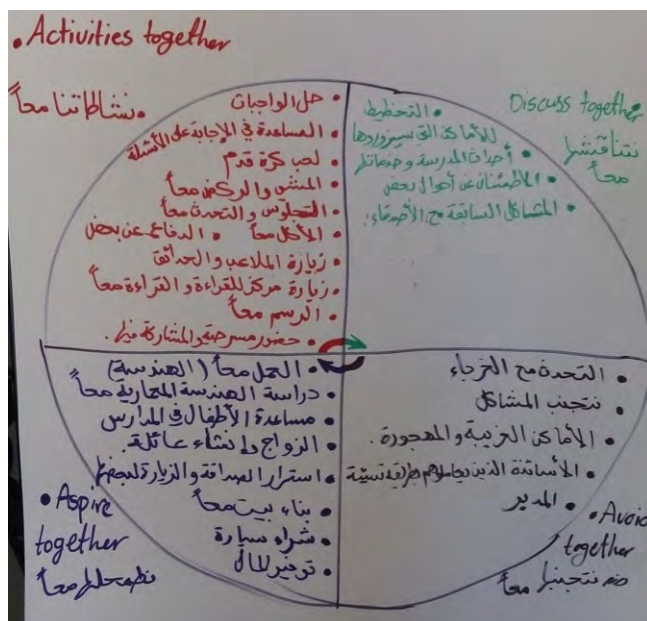 • Activities together
• نشاطاتنا معاً
• حل الواجبات
• المساعدة في الإجابة على الأسئلة
• لعب كرة قدم
• المشي والركض معاً
• التجلوس والتحدث معاً
• الأكل معاً • الدفاع عن بعض
• زيارة الملاعب والحدائق
• زيارة مركز للقراءة والقراءة معاً
• الرسم معاً
• حضور مسرحية والمشاركة فيها.
Discuss together
نتناقشها
معاً
• التخطيط
للأماكن التي سيزوروها
• أحداث المدرسة و
• الاطمئنان عن أحوال بعض
• المشاكل السابقة مع الأصدقاء.
• العمل معاً (الهندسة)
• دراسة الهندسة المعمارية معاً
• مساعدة الأطفال في المدارس
• الزواج وإنشاء عائلة.
• استرار الصداقة والزيارة لبعضها
• بناء بيت معاً
• شراء سيارة
• توفير المال
• Aspire
together
معاً
• التحدث مع الغرباء
• نتجنب المشاكل
• الأماكن الغريبة والمهجورة.
• الأساتذة الذين بطريقة سيئة
• المدير
• Avoid
together
نتجنبها معاً